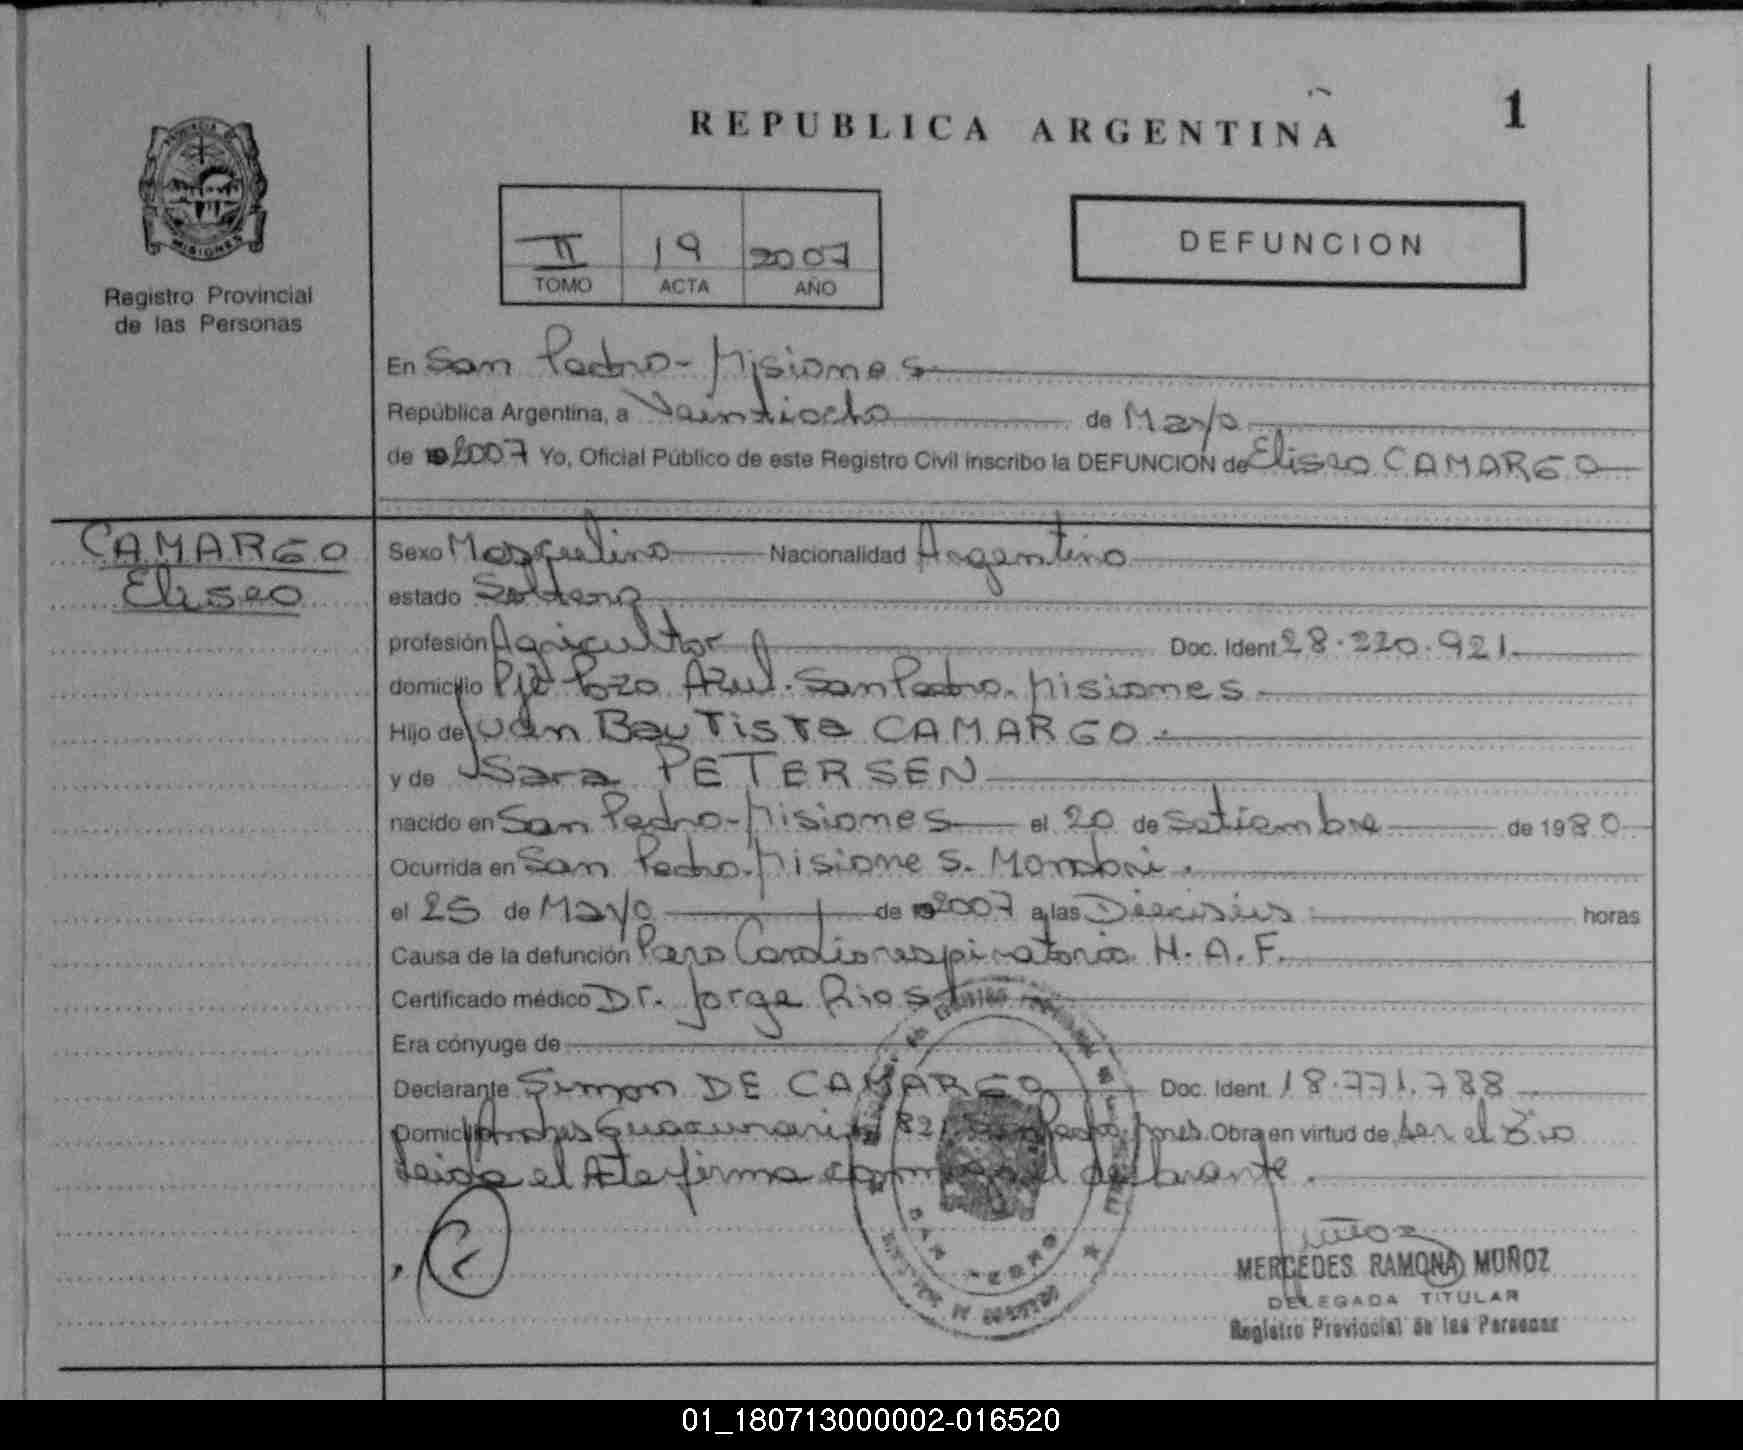 REPUBLICA ARGENTINA
1
PROVINCIA DE
MISIONES
Registro Provincial
de las Personas
II 19 2007
TOMO ACTA AÑO
DEFUNCION
En San Pedro - Misiones
República Argentina, a Veintiocho de Mayo
de 2007 Yo, Oficial Público de este Registro Civil inscribo la DEFUNCION de Eliseo CAMARGO
CAMARGO
Eliseo
Sexo Masculino Nacionalidad Argentino
estado Soltero
profesión Agricultor Doc. Ident. 28.220.921
domicilio Pje Pozo Azul. San Pedro. Misiones
Hijo de Juan Bautista CAMARGO.
y de Sara PETERSEN
nacido en San Pedro - Misiones el 20 de Setiembre de 1980
Ocurrida en San Pedro. Misiones.
el 25 de Mayo de 2007 a las Dieciséis horas
Causa de la defunción Paro Cardiorespiratorio. H.A.F.
Certificado médico Dr. Jorge Rios
Era cónyuge de
Declarante Simon DE CAMARGO Doc. Ident. 18.771.788
Domicilio Andres Guacurari 821 San Pedro. Mnes. Obra en virtud de ser el Tio
Leida el Acta firma conmigo el declarante.
SAN PEDRO
MERCEDES RAMONA MUÑOZ
DELEGADA TITULAR
Registro Provincial de las Personas
01_180713000002-016520